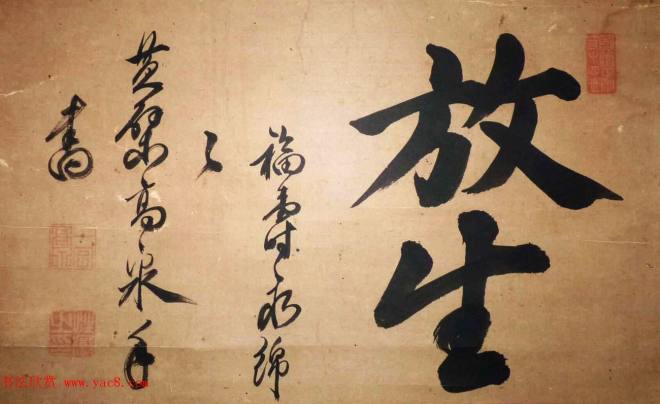 放生
福壽永綿
々
黄檗高泉手
書
书法欣赏 www.yac8.com